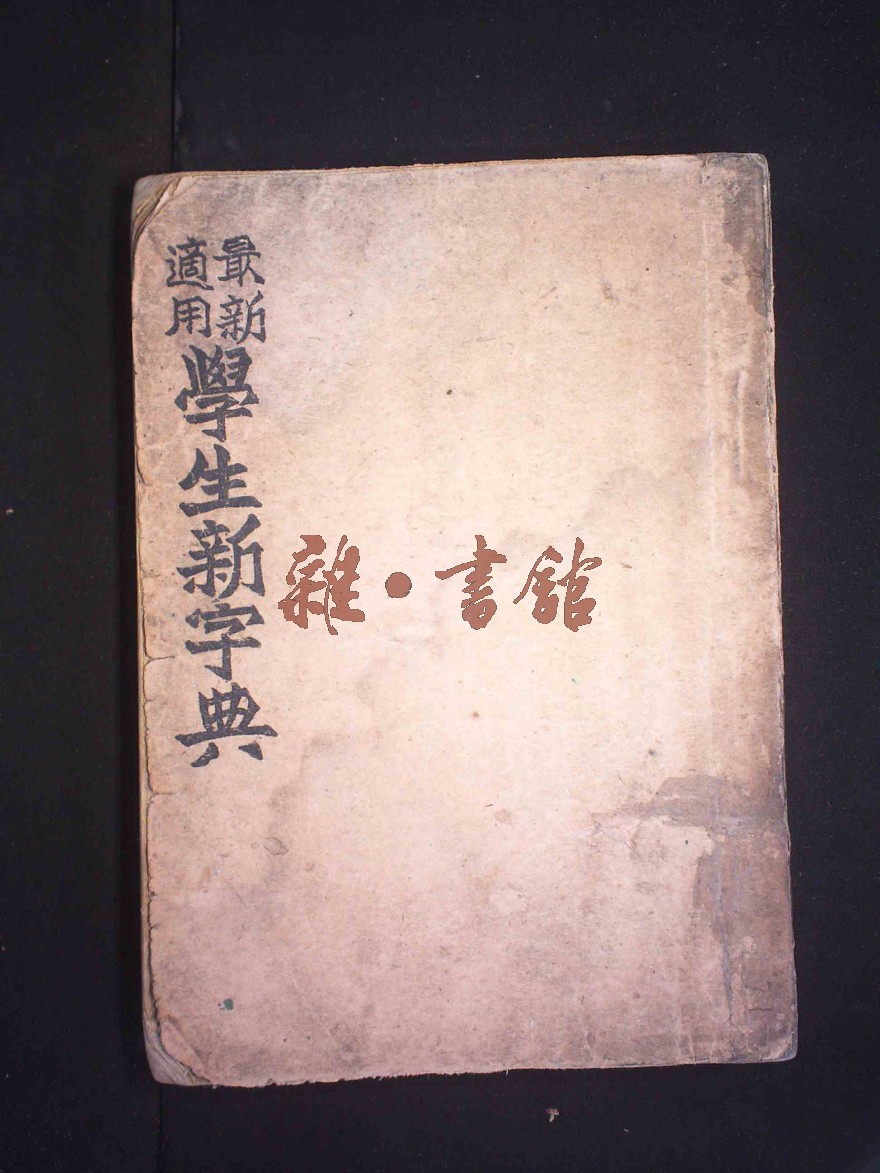 最新
適用
學生新字典
雜·書館